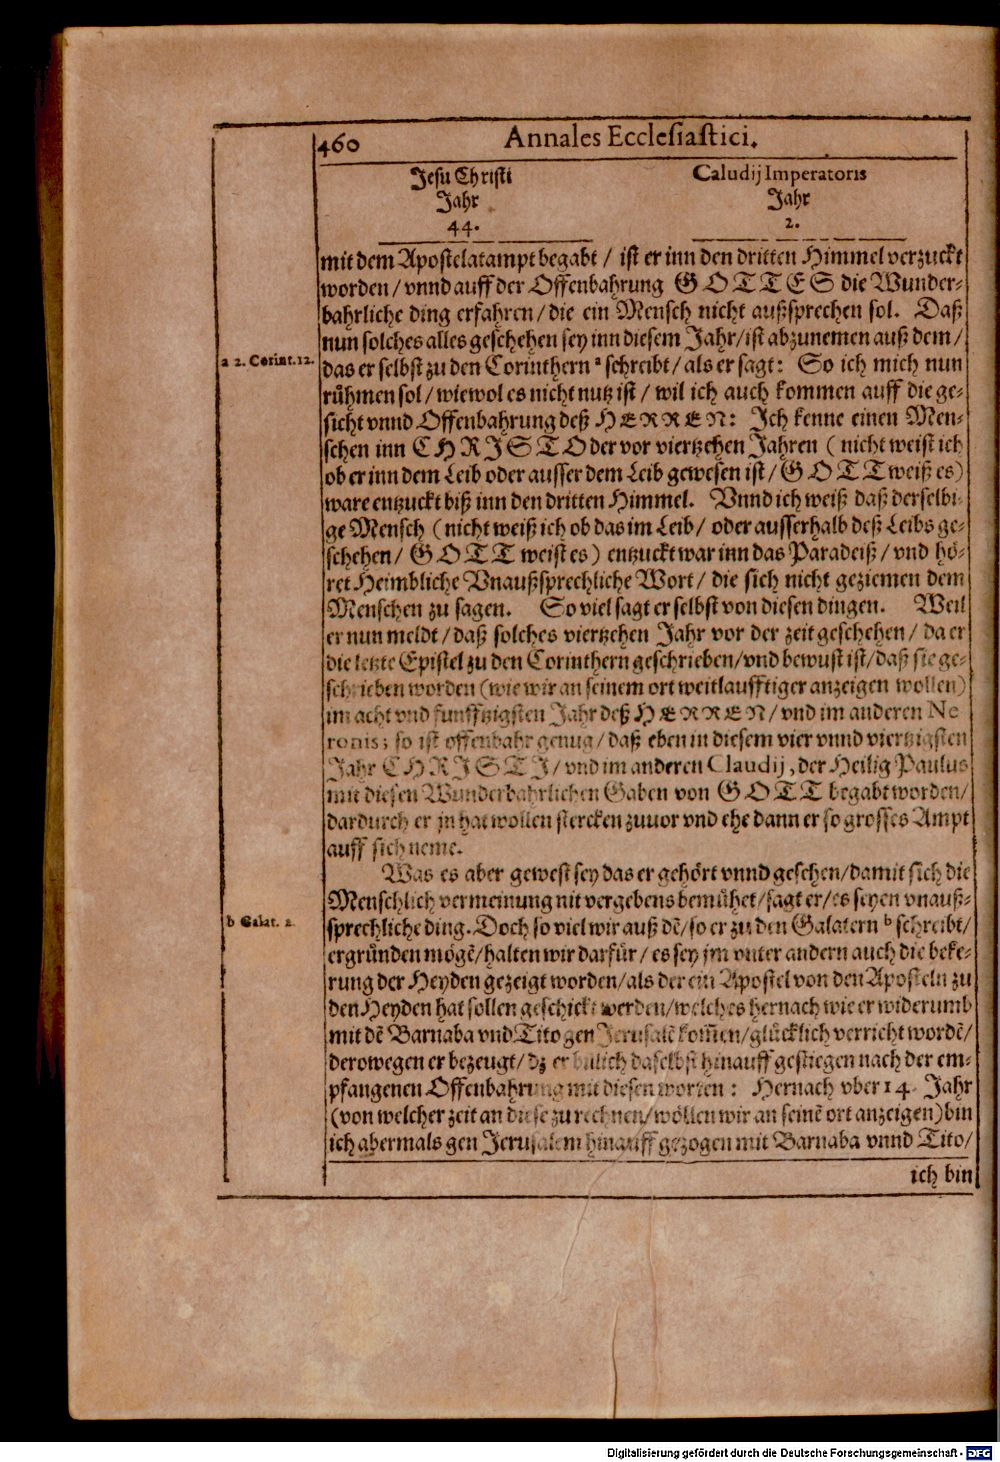 460 Annales Ecclesiastici.
Jesu Christi Caludij Imperatoris
Jahr Jahr
44. 2.
mit dem Apostelatampt begabt / ist er inn den dritten Himmel verzuckt
worden / vnnd auff der Offenbahrung GOTTES die Wunder-
bahrliche ding erfahren / die ein Mensch nicht außsprechen sol. Daß
nun solches alles geschehen sey inn diesem Jahr / ist abzunemen auß dem /
a 2. Corint. 12. das er selbst zu den Corinthern a schreibt / als er sagt: So ich mich nun
rühmen sol / wiewol es nicht nutz ist / wil ich auch kommen auff die ge-
sicht vnnd Offenbahrung deß HERREN: Ich kenne einen Men-
schen inn CHRISTO der vor viertzehen Jahren ( nicht weist ich
ob er inn dem Leib oder ausser dem Leib gewesen ist / GOTT weiß es)
ware entzuckt biß inn den dritten Himmel. Vnnd ich weiß daß derselbi-
ge Mensch (nicht weiß ich ob das im Leib / oder ausserhalb deß Leibs ge-
schehen / GOTT weist es) entzuckt war inn das Paradeiß / vnd hö-
ret Heimbliche Vnaußsprechliche Wort / die sich nicht geziemen dem
Menschen zu sagen. So viel sagt er selbst von diesen dingen. Weil
er nun meldt / daß solches viertzehen Jahr vor der zeit geschehen / da er
die letzte Epistel zu den Corinthern geschrieben / vnd bewust ist / daß sie ge-
schrieben worden (wie wir an seinem ort weitlaufftiger anzeigen wollen)
im acht vnd funfftzigsten Jahr deß HERREN / vnd im anderen Ne
ronis; so ist offenbahr genug / daß eben in diesem vier vnnd viertzigsten
Jahr CHRISTI / vnd im anderen Claudij, der Heilig Paulus
mit diesen Wunderbahrlichen Gaben von GOTT begabt worden /
dardurch er jn hat wollen stercken zuuor vnd ehe dann er so grosses Ampt
auff sich neme.
Was es aber gewest sey das er gehört vnnd gesehen / damit sich die
Menschlich vermeinung nit vergebens bemühet / sagt er / es seyen vnauß-
b Galat. 2. sprechliche ding. Doch so viel wir auß dẽ / so er zu den Galatern b schreibt /
ergründen mögẽ / halten wir darfür / es sey jm vnter andern auch die beke-
rung der Heyden gezeigt worden / als der ein Apostel von den Aposteln zu
den Heyden hat sollen geschickt werden / welches hernach wie er widerumb
mit dẽ Barnaba vnd Tito gen Jerusalẽ kom̃en / glücklich verricht wordẽ /
derowegen er bezeugt / dz er bälich daselbst hinauff gestiegen nach der em-
pfangenen Offenbahrung mit diesen worten: Hernach vber 14. Jahr
(von welcher zeit an diese zu rechnen / wöllen wir an seinẽ ort anzeigen) bin
ich abermals gen Jerusalem hinauff gezogen mit Barnaba vnnd Tito /
ich bin
Digitalisierung gefördert durch die Deutsche Forschungsgemeinschaft - DFG